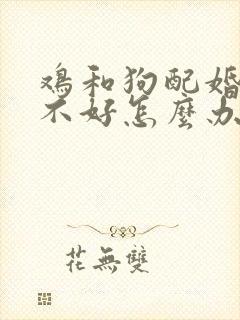 鸡和狗配婚
不好怎麽办
花無雙